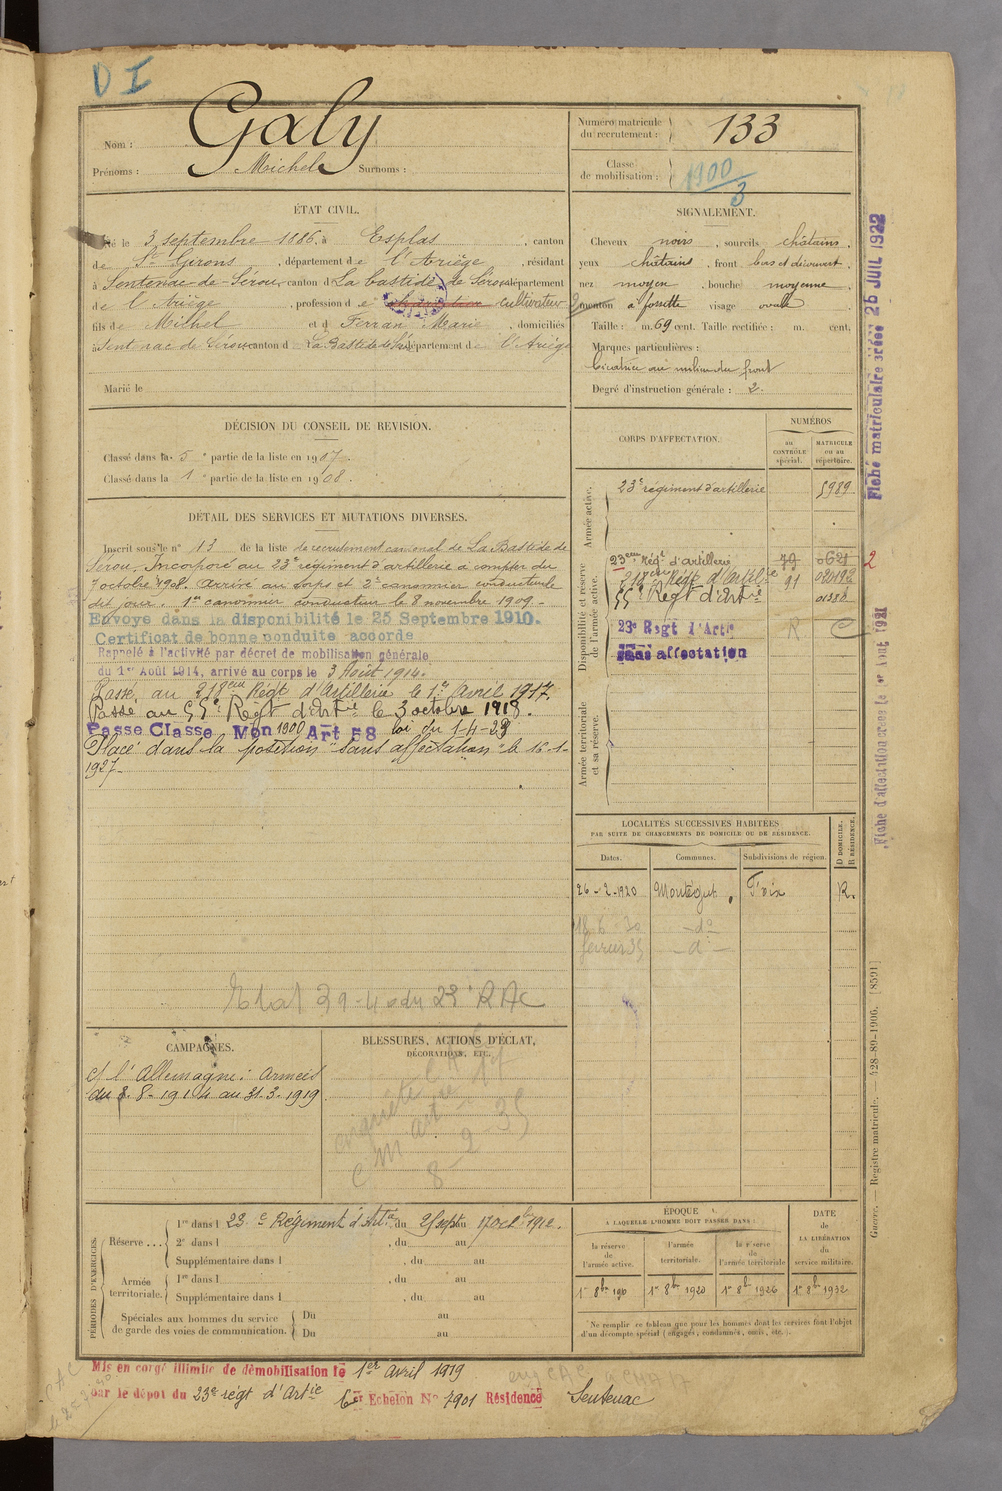 D I
Nom : Galy
Prénoms : Michel Surnoms :
Numéro matricule du recrutement : 133
Classe de mobilisation : 1900/3
ÉTAT CIVIL.
Né le 3 septembre 1886, à Esplas, canton
de St Girons, département de l'Ariège, résidant
à Sentenac de Sérou, canton de La bastide de Sérou, département
de l'Ariège, profession de cultivateur
fils de Michel et de Ferran Marie, domiciliés
à Sentenac de Sérou canton de La Bastide de Sérou département de l'Ariège
Marié le
SIGNALEMENT.
Cheveux noirs, sourcils châtains,
yeux châtains, front bas et découvert,
nez moyen, bouche moyenne,
menton à fossette visage ovale
Taille : 1 m. 69 cent. Taille rectifiée : m. cent.
Marques particulières :
Cicatrice au milieu du front
Degré d'instruction générale : 2.
DÉCISION DU CONSEIL DE REVISION.
Classé dans la 5e partie de la liste en 1907.
Classé dans la 1e partie de la liste en 1908.
DÉTAIL DES SERVICES ET MUTATIONS DIVERSES.
Inscrit sous le n° 13 de la liste de recrutement cantonal de La Bastide de
Sérou. Incorporé au 23e régiment d'artillerie à compter du
7 octobre 1908. Arrivé au corps et 2e canonnier conducteur le
dit jour. 1er canonnier conducteur le 8 novembre 1909.-
Envoyé dans la disponibilité le 25 Septembre 1910.
Certificat de bonne conduite accordé
Rappelé à l'activité par décret de mobilisation générale
du 1er Août 1914, arrivé au corps le 3 Août 1914.
Passé au 218eme Régt d'Artillerie le 1er Avril 1917.
Passé au 55e Régt d'Artie le 3 octobre 1918.
Passe Classe Mon 1900 Art 58 loi du 1-4-23
Placé dans la position "sans affectation" le 16-1-
1927-
CORPS D'AFFECTATION.
NUMÉROS
au CONTRÔLE spécial.
MATRICULE ou au répertoire.
Armée active.
23e régiment d'artillerie 5989.
Disponibilité et réserve de l'armée active.
23eme Régt d'artillerie 79 0621 2
218eme Régt d'Artillie 91
55e Régt d'Artie 01380
23e Regt d'Artie R C
sans affectation
Armée territoriale et sa réserve.
LOCALITÉS SUCCESSIVES HABITÉES
PAR SUITE DE CHANGEMENTS DE DOMICILE OU DE RÉSIDENCE.
Dates. Communes. Subdivisions de région. D DOMICILE. R RÉSIDENCE.
26-2-1920 Montégut Foix R.
18 6 30 -do-
février 35 -d°-
Etat 39-40 du 23e RAC
CAMPAGNES.
Ct l'Allemagne : Armées
du 3-8-1914 au 31-3-1919
BLESSURES, ACTIONS D'ÉCLAT,
DÉCORATIONS, ETC.
enquête
8-2-35
PÉRIODES D'EXERCICES.
Réserve ...
1re dans l 23e Régiment d'Artie du 25 sept au 17 Octbre 1912.
2e dans l , du au
Supplémentaire dans l , du au
Armée territoriale.
1re dans l , du au
Supplémentaire dans l , du au
Spéciales aux hommes du service de garde des voies de communication.
Du au
Du au
ÉPOQUE
A LAQUELLE L'HOMME DOIT PASSER DANS :
la réserve de l'armée active.
l'armée territoriale.
la réserve de l'armée territoriale
DATE de LA LIBÉRATION du service militaire.
1er 8bre 190 1er 8bre 1920 1er 8bre 1926 1er 8bre 1932
Ne remplir ce tableau que pour les hommes dont les services font l'objet
d'un décompte spécial (engagés, condamnés, omis, etc.).
Mis en congé illimité de démobilisation le 1er avril 1919
par le dépot du 23e régt d'Artie 6er Echelon N° 7901 Résidence Sentenac
Fiche matriculaire créée 26 JUIL 1922
Fiche d'affectation créée le 1er Aout 1921
Guerre. — Registre matricule. — 428-89-1906. [8591]